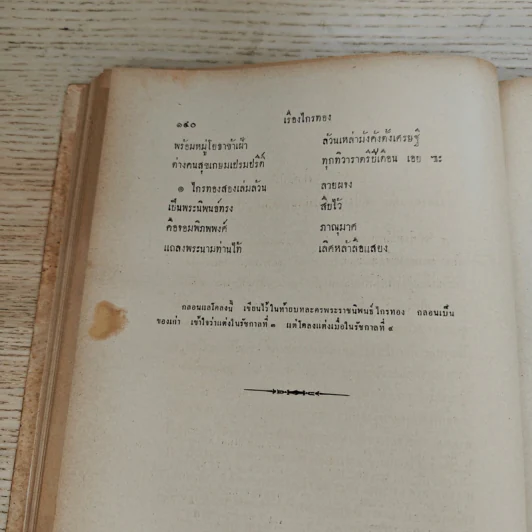 ๑๕๐
เรื่องไกรทอง
พร้อมหมู่โยธาข้าเฝ้า ล้วนเหล่ามั่งคั่งตั้งเศรษฐี
ต่างคนสุขเกษมเปรมปรีดิ์ ทุกทิวาราตรีปีเดือน เอย ฯะ
๏ ไกรทองสองเล่มล้วน ลายผจง
เปนพระนิพนธ์ทรง สืบไว้
คือจอมพิภพพงศ์ ภาณุมาศ
แถลงพระนามท่านไท้ เลิศหล้าลือแสยง
กลอนแลโคลงนี้ เขียนไว้ในท้ายบทละครพระราชนิพนธ์ ไกรทอง กลอนเปน
ของเก่า เข้าใจว่าแต่งในรัชกาลที่ ๓ แต่โคลงแต่งเมื่อในรัชกาลที่ ๔